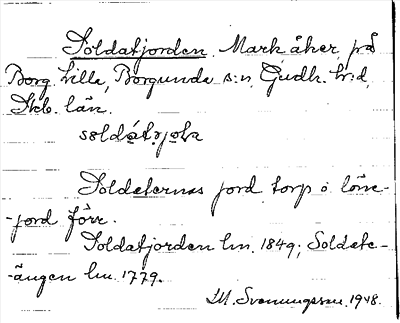 Soldatjorden. Mark åker på
Borg Lilla, Borgunda s:n, Gudh. h:d,
Skb. län.
soldátjoḷa
Soldaternas jord, torp o. löne-
-jord förr.
Soldatjorden lm. 1849; Soldate-
-ängen lm. 1779.
M. Svenungsson. 1948.